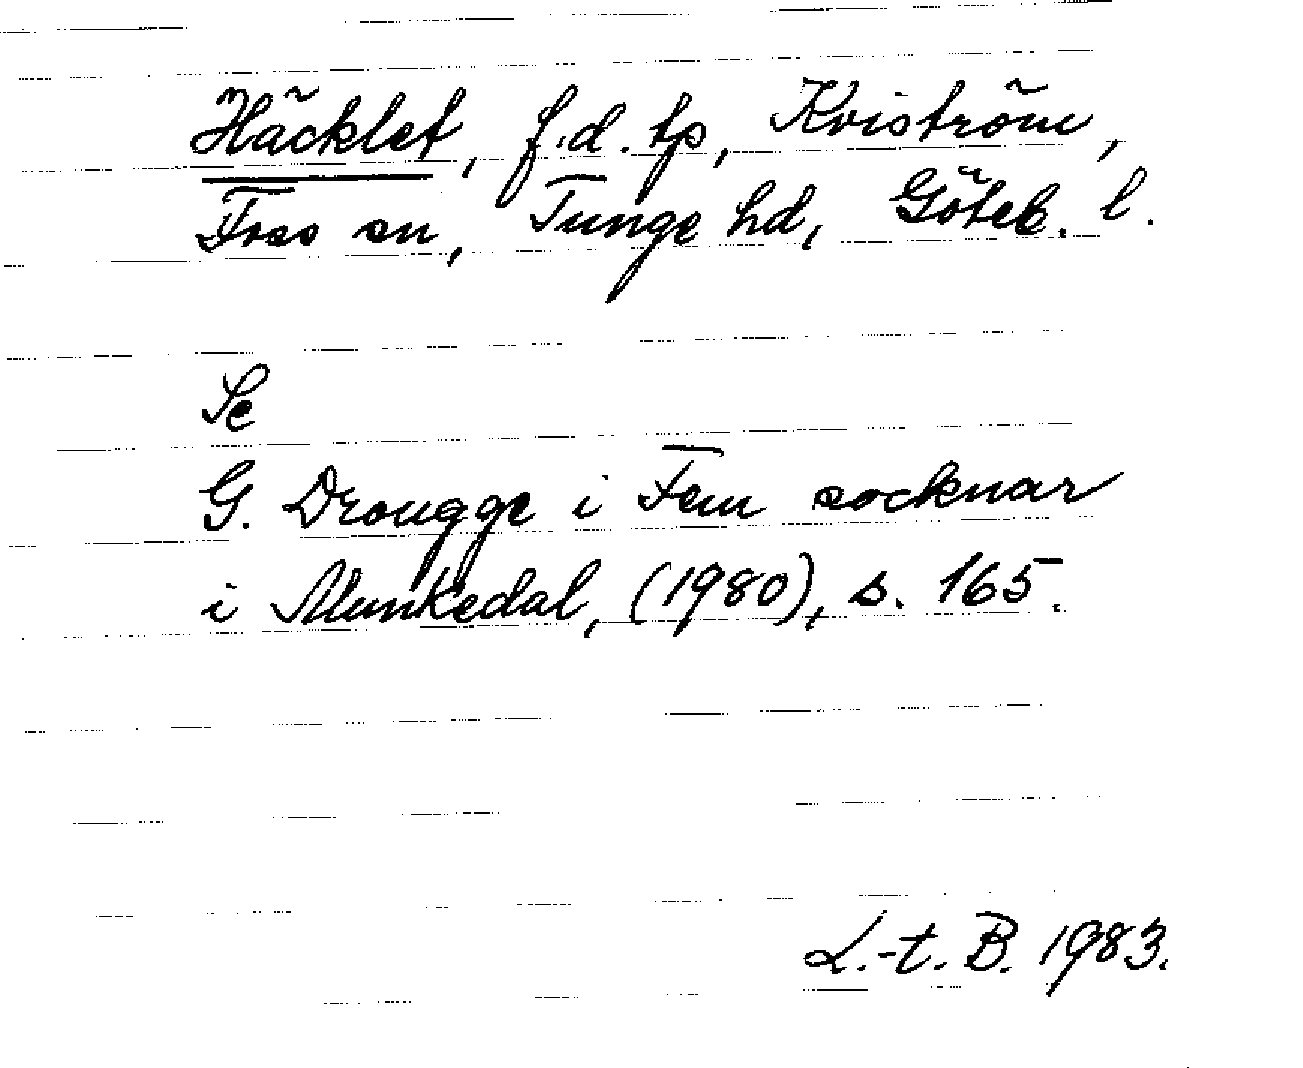 Häcklet, f.d. tp, Kviström,
Foss sn, Tunge hd, Göteb. l.
Se
G. Drougge i Fem socknar
i Munkedal, (1980), s. 165.
L.-t. B. 1983.